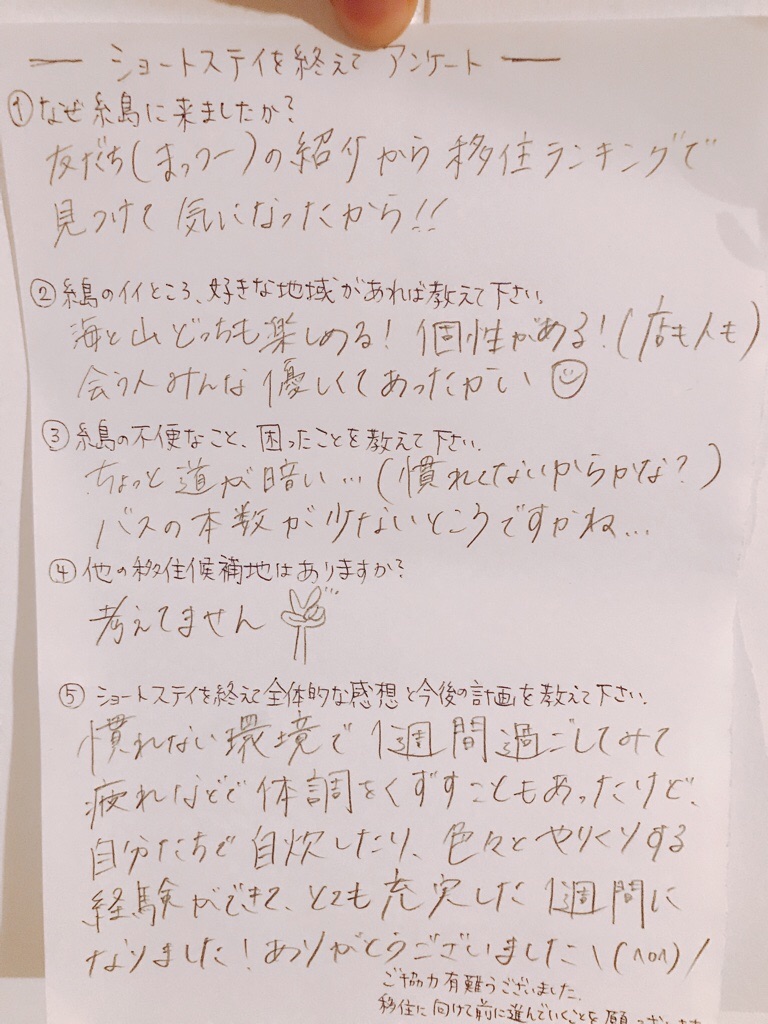 — ショートステイを終えて アンケート —
①なぜ糸島に来ましたか?
友だち(まっつー)の紹介から 移住ランキングで
見つけて 気になったから!!
②糸島のイイところ、好きな地域があれば教えて下さい。
海と山どっちも楽しめる! 個性がある!(店も人も)
会う人みんな優しくてあったかい
③糸島の不便なこと、困ったことを教えて下さい。
ちょっと道が暗い…(慣れてないからかな?)
バスの本数が少ないところですかね…
④他の移住候補地はありますか?
考えてません
⑤ ショートステイを終えて全体的な感想と今後の計画を教えて下さい。
慣れない環境で 1週間過ごしてみて
疲れなどで体調をくずすこともあったけど、
自分たちで自炊したり、色々とやりくりする
経験ができて、とても充実した1週間に
なりました!ありがとうございました\(^o^)/
ご協力有難うございました。
移住に向けて前に進んでいくことを願って